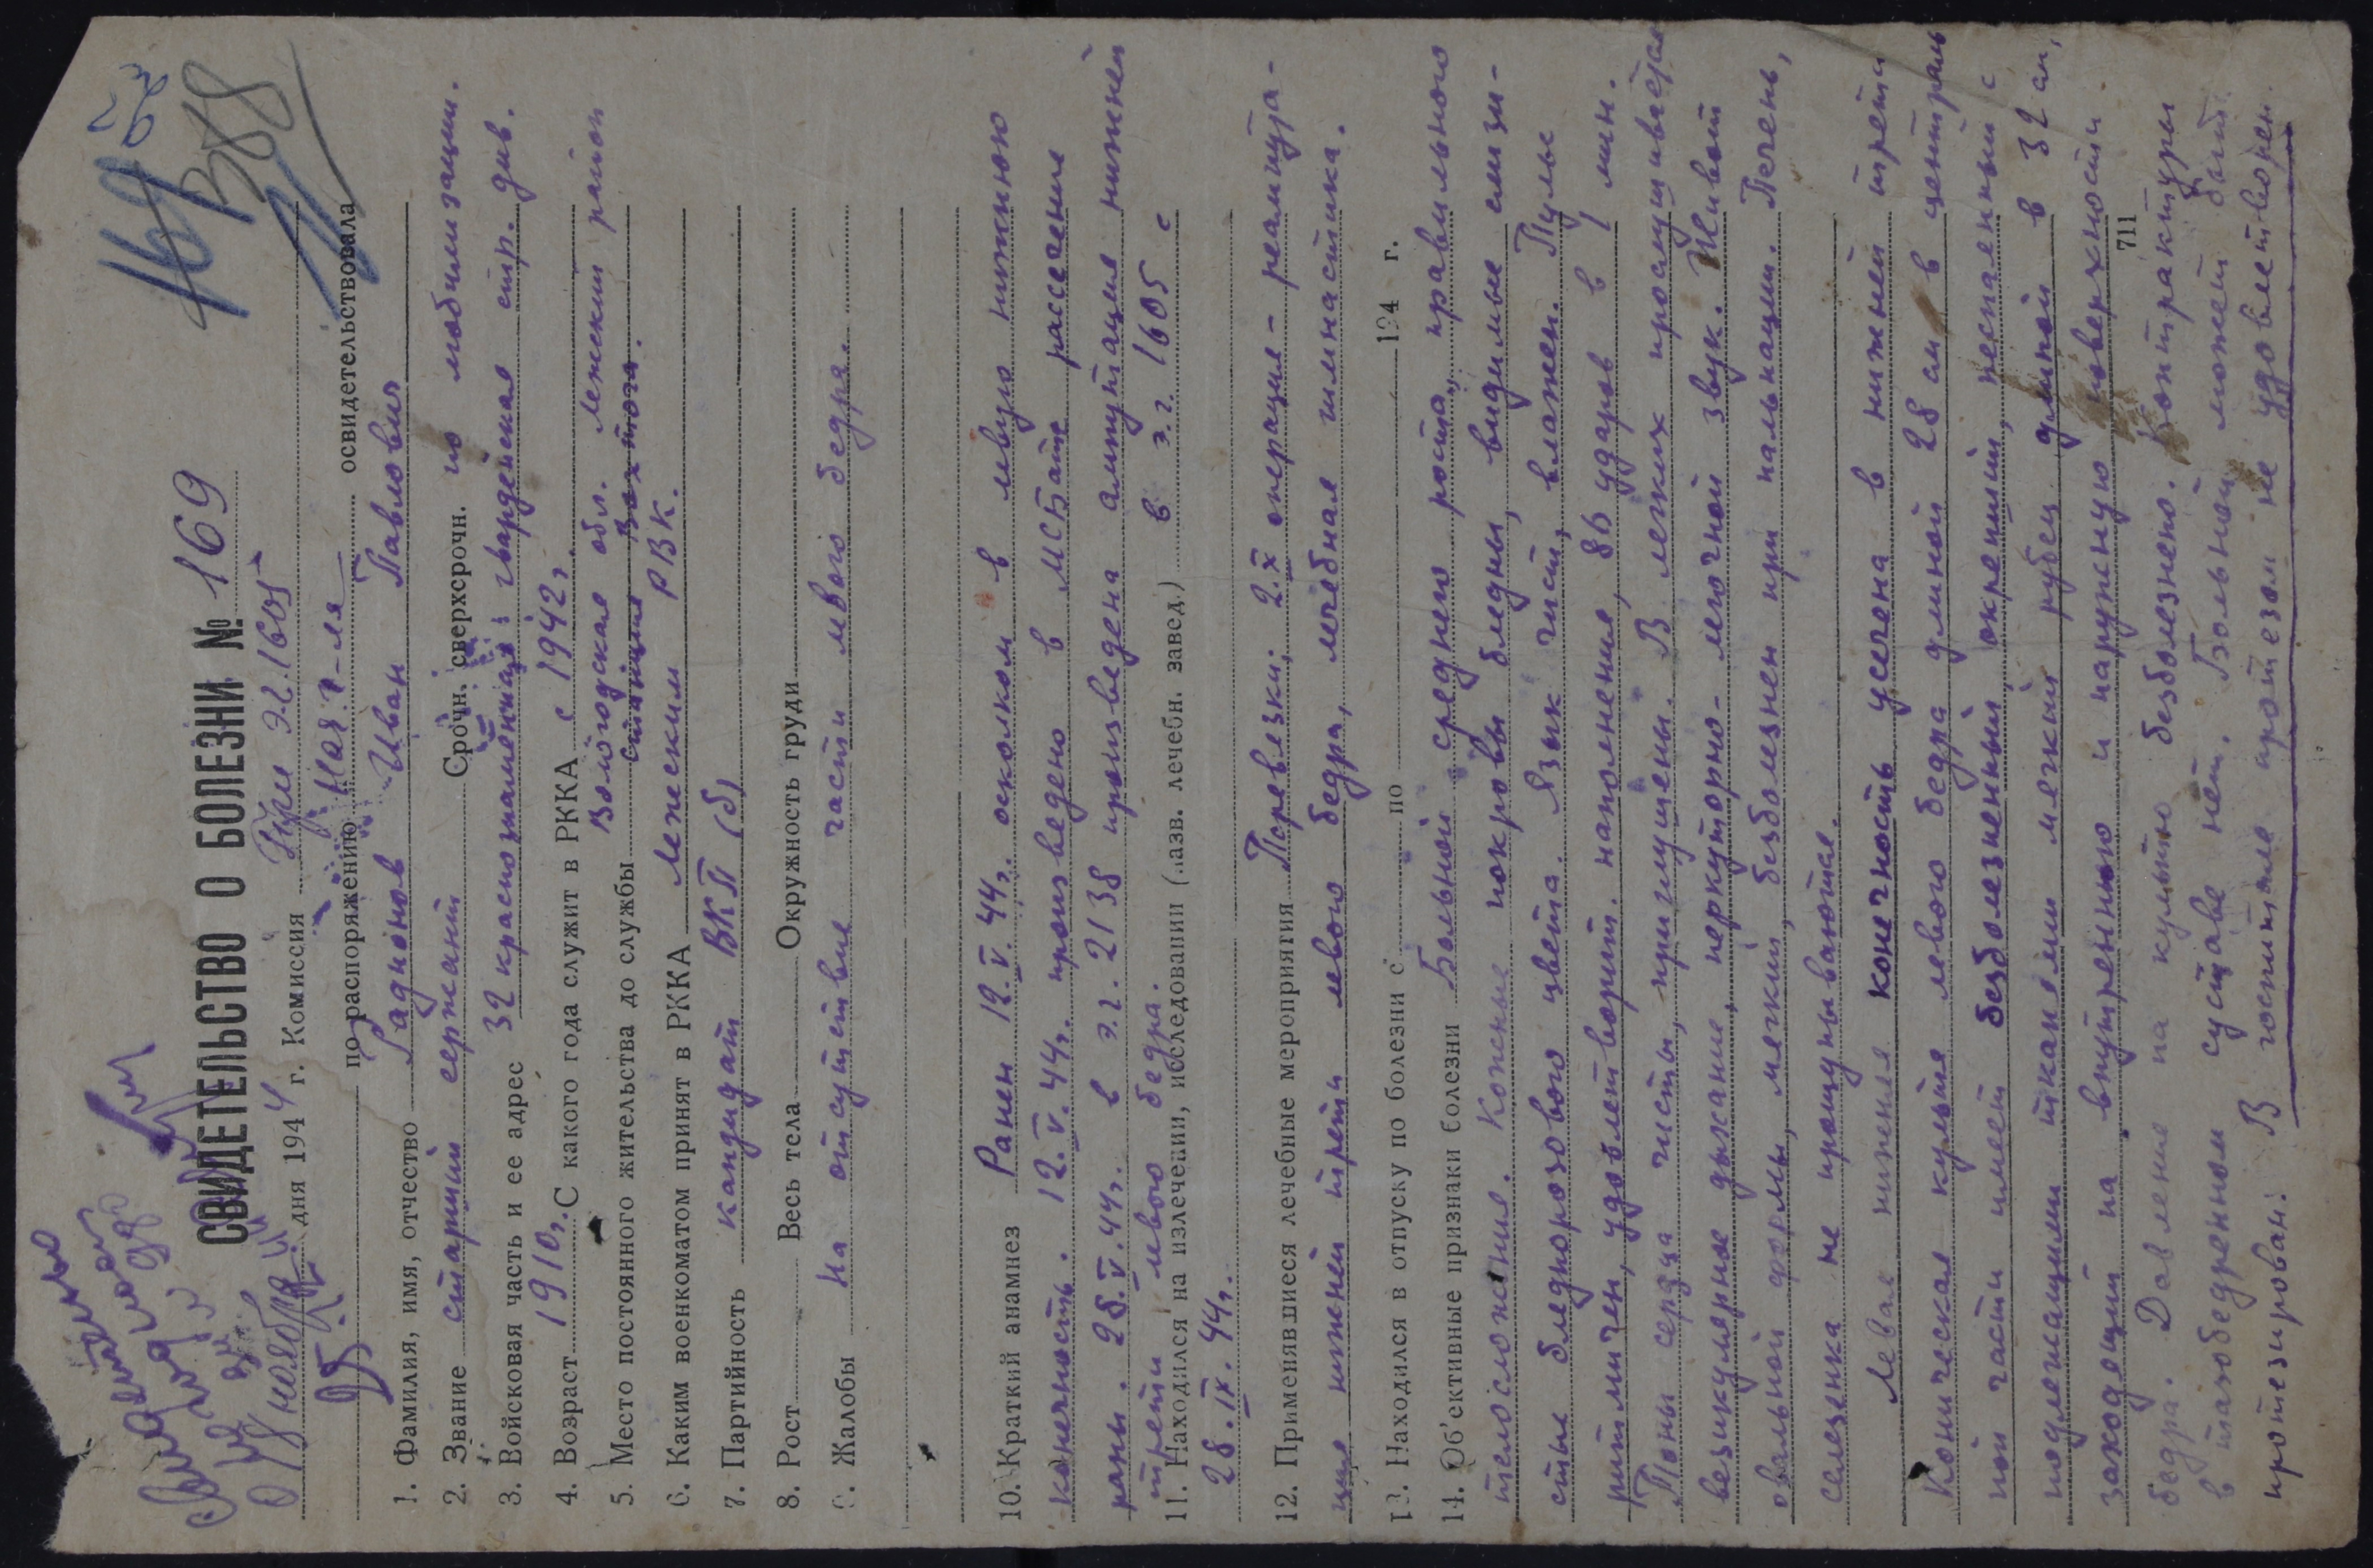 169
388
Свидетельство
СВИДЕТЕЛЬСТВО О БОЛЕЗНИ № 169
" 18 " ноября дня 1944 г. Комиссия при э.г. 1605
по распоряжению Нач. г-ля освидетельствовала
1. Фамилия, имя, отчество Радионов Иван Павлович
2. Звание старший сержант Срочн. сверхсрочн. по мобилизации.
3. Войсковая часть и ее адрес 32 краснознаменная гвардейская стр. див.
4. Возраст 1910 г. С какого года служит в РККА с 1942 г.
5. Место постоянного жительства до службы Вологодская обл. Лежский район
станция Вохтога.
6. Каким военкоматом принят в РККА Лежским РВК.
7. Партийность кандидат ВКП (б)
8. Рост Весь тела Окружность груди
9. Жалобы на отсутствие части левого бедра.
10. Краткий анамнез Ранен 12.V.44 г. осколком в левую нижнюю
конечность. 12.V.44 г. произведено в МСБате рассечение
раны. 28.V.44 г. в э.г. 2138 произведена ампутация нижней
трети левого бедра.
11. Находился на излечении, исследовании (назв. лечебн. завед.) в э.г. 1605 с
28.IX.44 г.
12. Применявшиеся лечебные мероприятия Перевязки; 2.X операция - реампута-
ция нижней трети левого бедра, лечебная гимнастика.
13. Находился в отпуску по болезни с по 194 г.
14. Об'ективные признаки болезни Больной среднего роста, правильного
телосложения. Кожные покровы бледны, видимые слизи-
стые бледнорозового цвета. Язык чист, влажен. Пульс
ритмичен, удовлетворит. наполнения, 86 ударов в 1 мин.
Тоны сердца чисты, приглушены. В легких прослушивается
везикулярное дыхание, перкуторно - легочной звук. Живот
овальной формы, мягкий, безболезнен при пальпации. Печень,
селезенка не прощупываются.
Левая нижняя конечность усечена в нижней трети
Коническая культя левого бедра длиной 28 см в централь
ной части имеет безболезненный, окрепший, неспаянный с
подлежащими тканями мягкий рубец длиной в 32 см,
заходящий на внутреннюю и наружную поверхности
711
бедра. Давление на культю безболезнено. Контрактуры
в тазобедренном суставе нет. Больной может быть
протезирован. В госпитале протезом не удовлетворен.